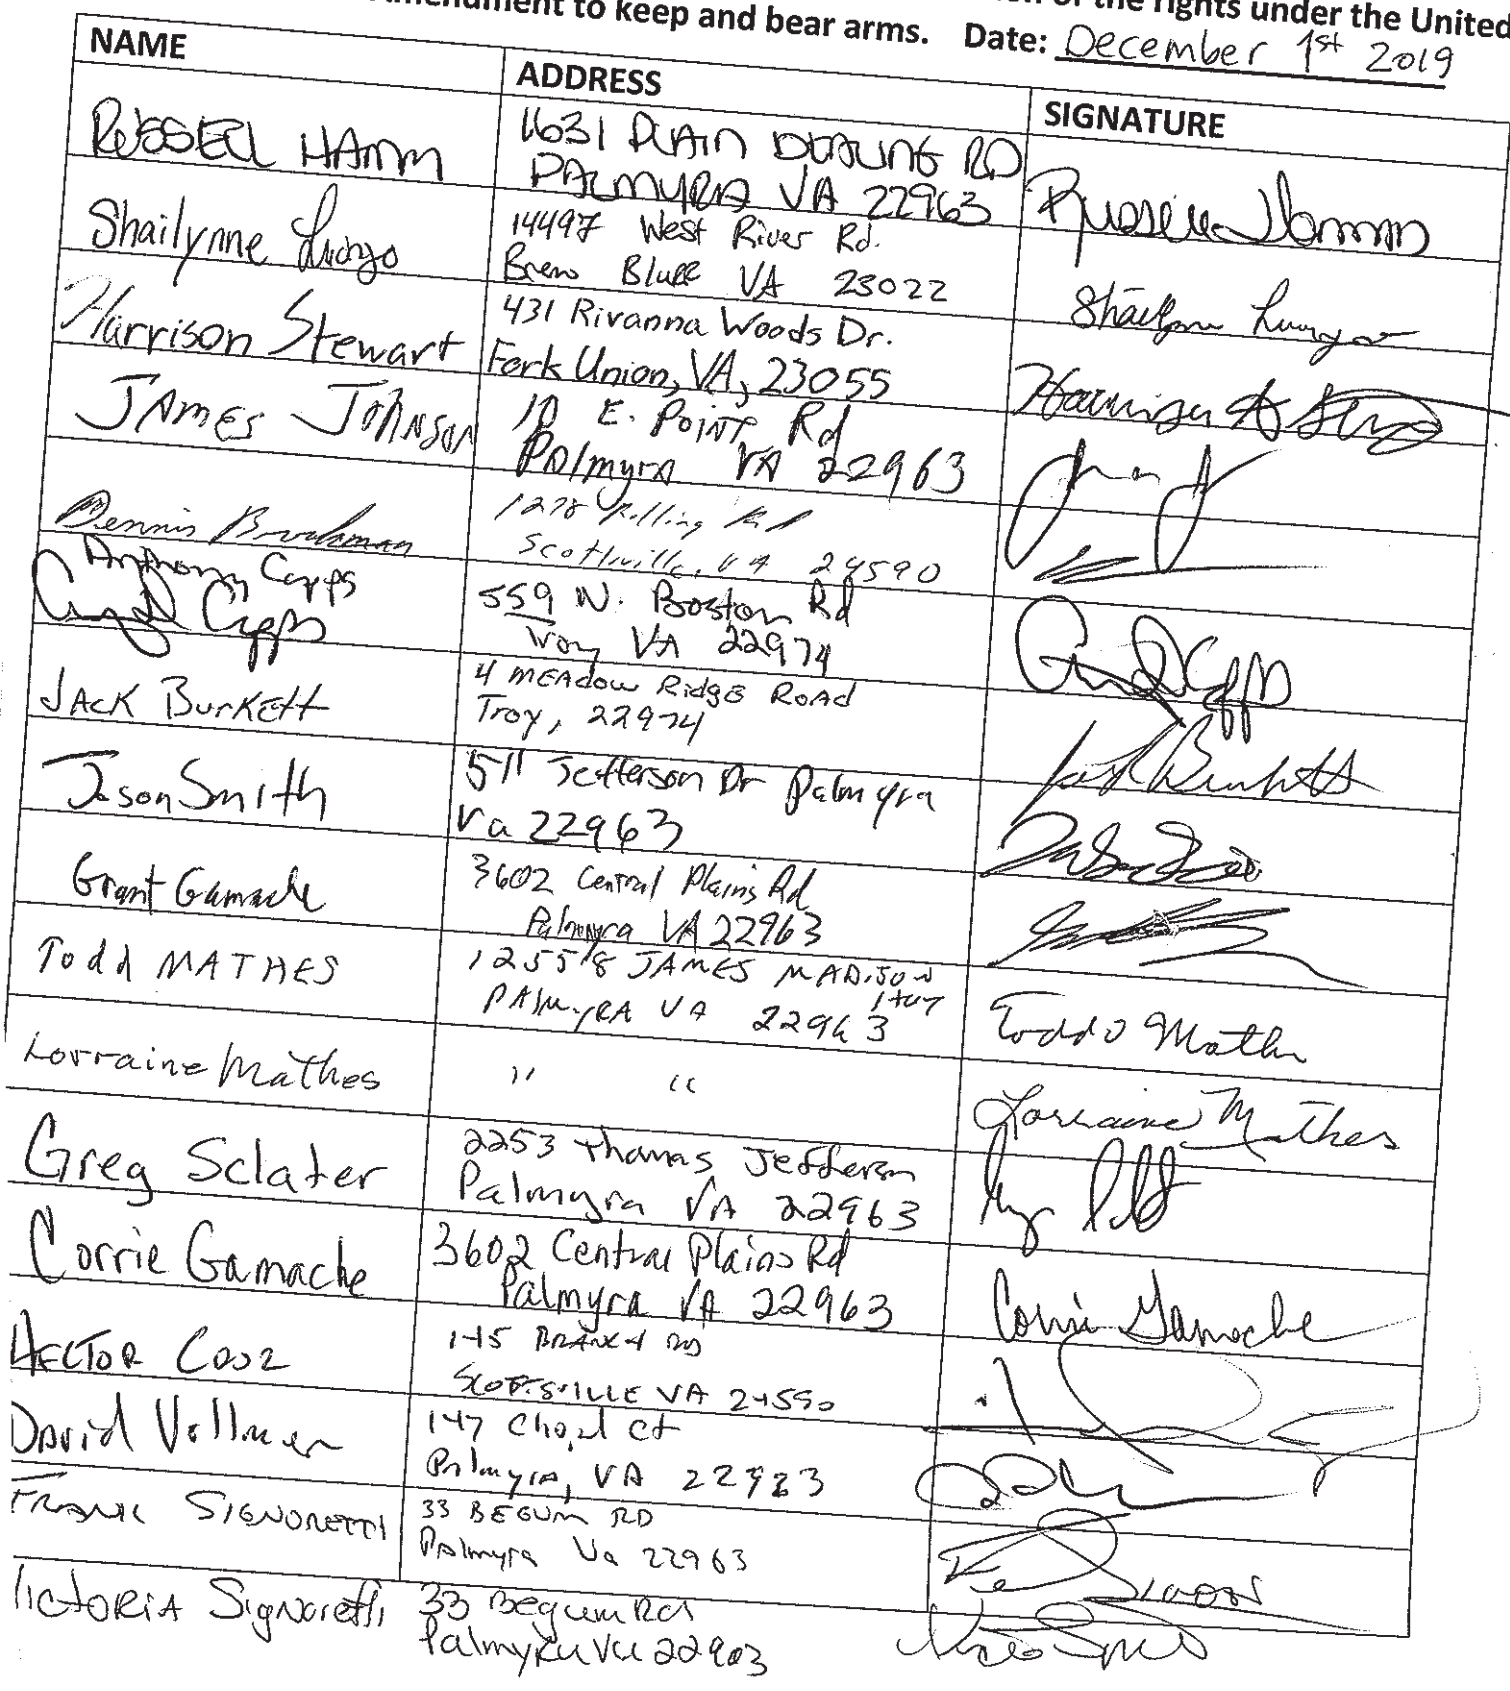 amendment to keep and bear arms. Date: December 1st 2019
of the rights under the United
NAME ADDRESS SIGNATURE
RUSSELL HAMM
1631 PLAIN DEALING RD
PALMYRA VA 22963
Shailynne Luongo
14497 West River Rd.
Bremo Bluff VA 23022
Harrison Stewart
431 Rivanna Woods Dr.
Fork Union, VA, 23055
JAMES JOHNSON
10 E. POINT Rd
PAlmyra VA 22963
Dennis
1278 Rolling Rd
Scottsville, VA 24590
Anthony Capps
559 N. Boston Rd
Troy VA 22974
JACK BURKETT
4 MEADOW RidgE ROAD
Troy, 22974
Jack Burkett
Jason Smith
511 Jefferson Dr Palmyra
Va 22963
Grant Gamache
3602 Central Plains Rd
Palmyra VA 22963
Todd MATHES
12558 JAMES MADISON
Hwy
PAlmyRA VA 22963
Todd Mathes
Lorraine Mathes
" "
Lorraine Mathes
Greg Sclater
2253 Thomas Jefferson
Palmyra VA 22963
Corrie Gamache
3602 Central Plains Rd
Palmyra VA 22963
Corrie Gamache
HECTOR
145 BRANCH RD
SCOTTSVILLE VA 24590
DAvid Vollmer
147 Chapel Ct
Palmyra, VA 22963
FRANK SIGNORETTI
33 BEGUM RD
PAlmyra Va 22963
VICTORIA Signoretti
33 Begum Rd
Palmyra Va 22963